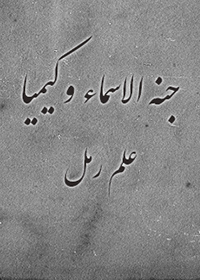 جنه الاسماء و کیمیا
علم رمل